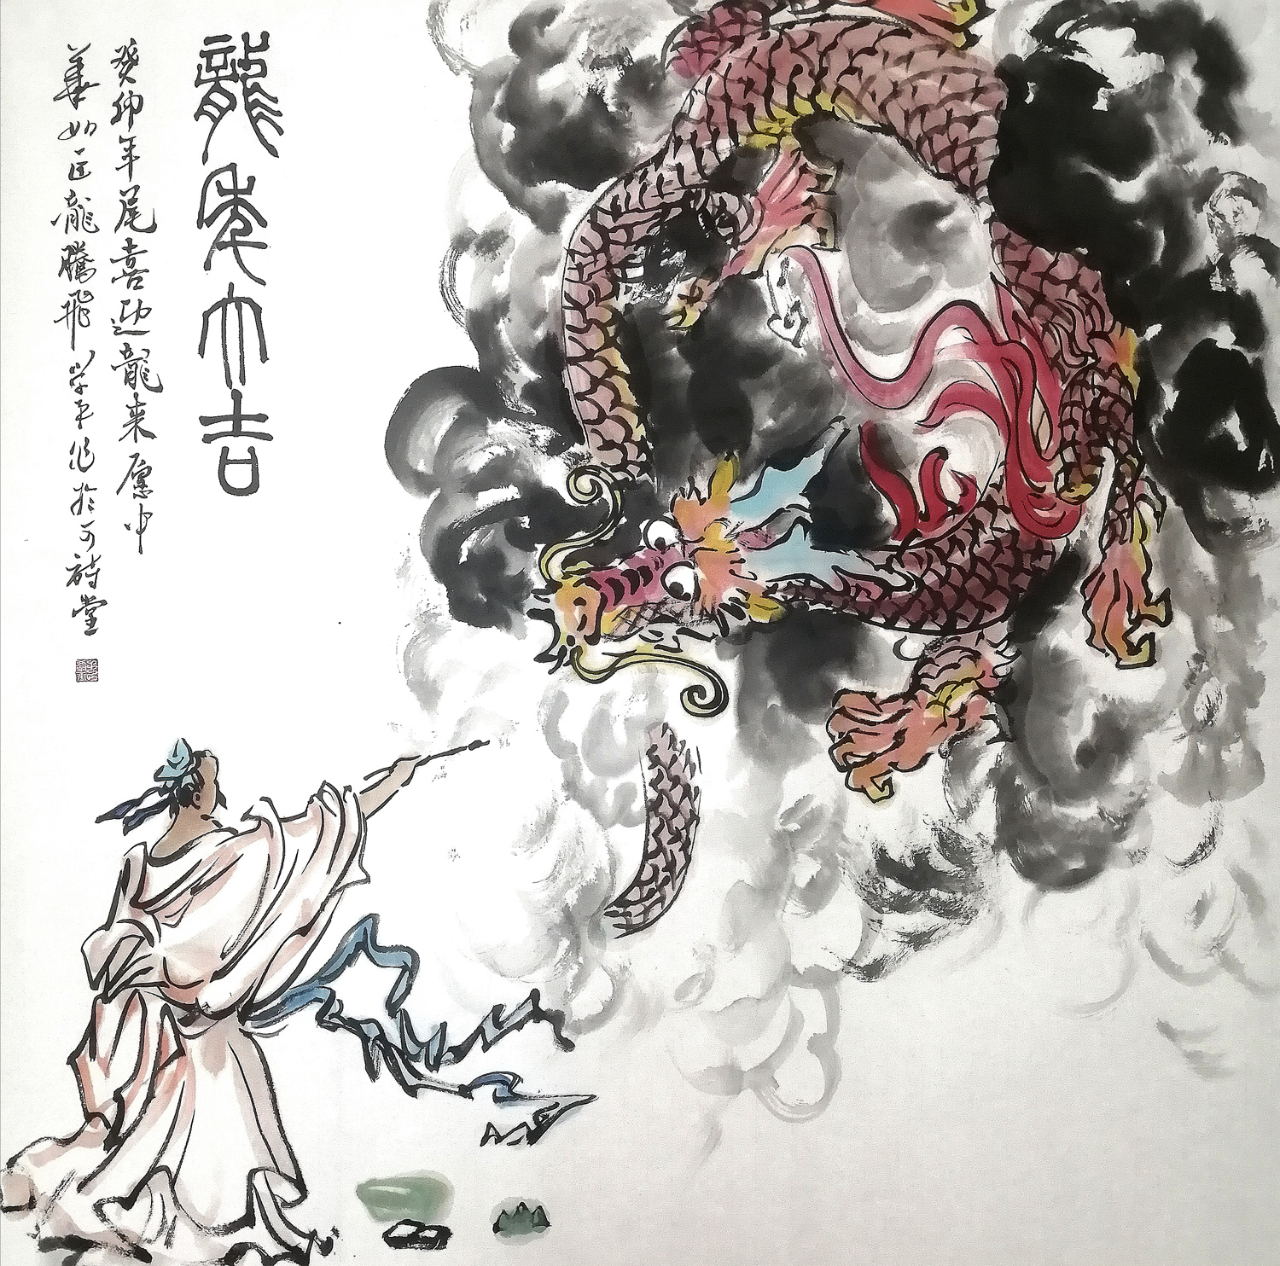 龍年大吉
癸卯年尾喜迎龍来愿中
華如巨龍騰飛 学平作於可詩堂